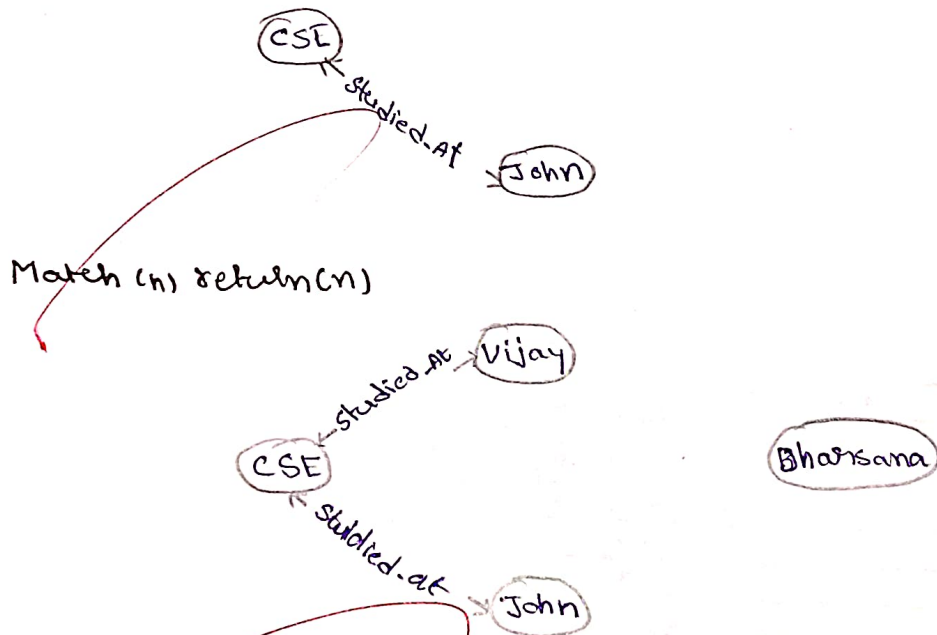 CSE
Studied_At
John
Match (n) return(n)
Vijay
Studied_At
CSE
Bharsana
Studied_at
John